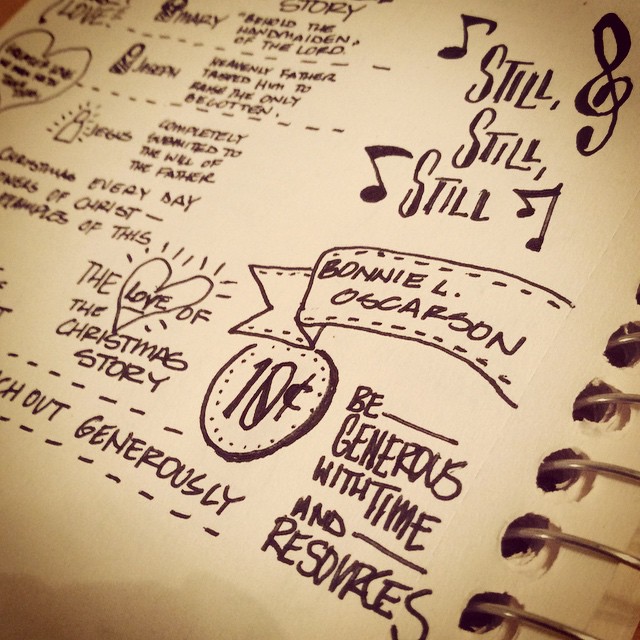 LOVE!
STORY
MARY
"BEHOLD THE
HANDMAIDEN
OF THE LORD."
JOSEPH
HEAVENLY FATHER
TAPPED HIM TO
RAISE THE ONLY
BEGOTTEN.
JESUS
COMPLETELY
SUBMITTED TO
THE WILL OF
THE FATHER
CHRISTMAS EVERY DAY
OF CHRIST —
OF THIS
THE LOVE OF
THE
CHRISTMAS
STORY
OUT GENEROUSLY
STILL,
STILL,
STILL
BONNIE L.
OSCARSON
10¢
BE
GENEROUS
WITH TIME
AND
RESOURCES